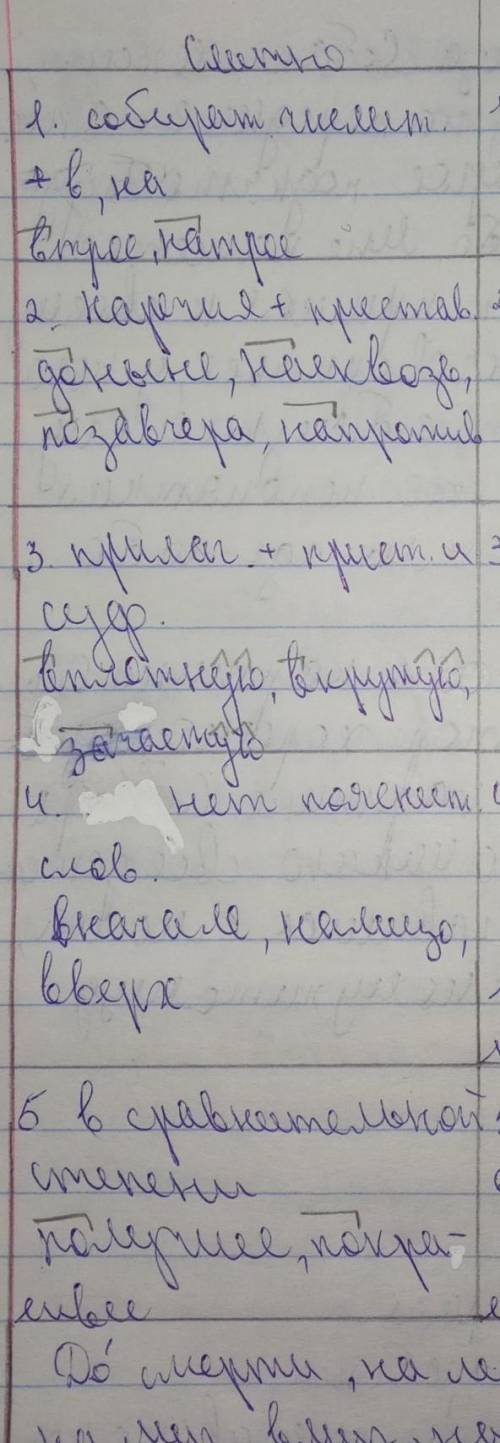 Слитно
1. собират. числит.
+ в, на
втрое, натрое
2. наречия + пристав.
доныне, насквозь,
позавчера, напротив
3. прилаг. + прист. и
суф.
вплотную, вкрутую,
зачастую
4. нет пояснит.
слов.
вначале, налицо,
вверх
5 в сравнительной
степени
получшее, покра-
сивее
До смерти, на